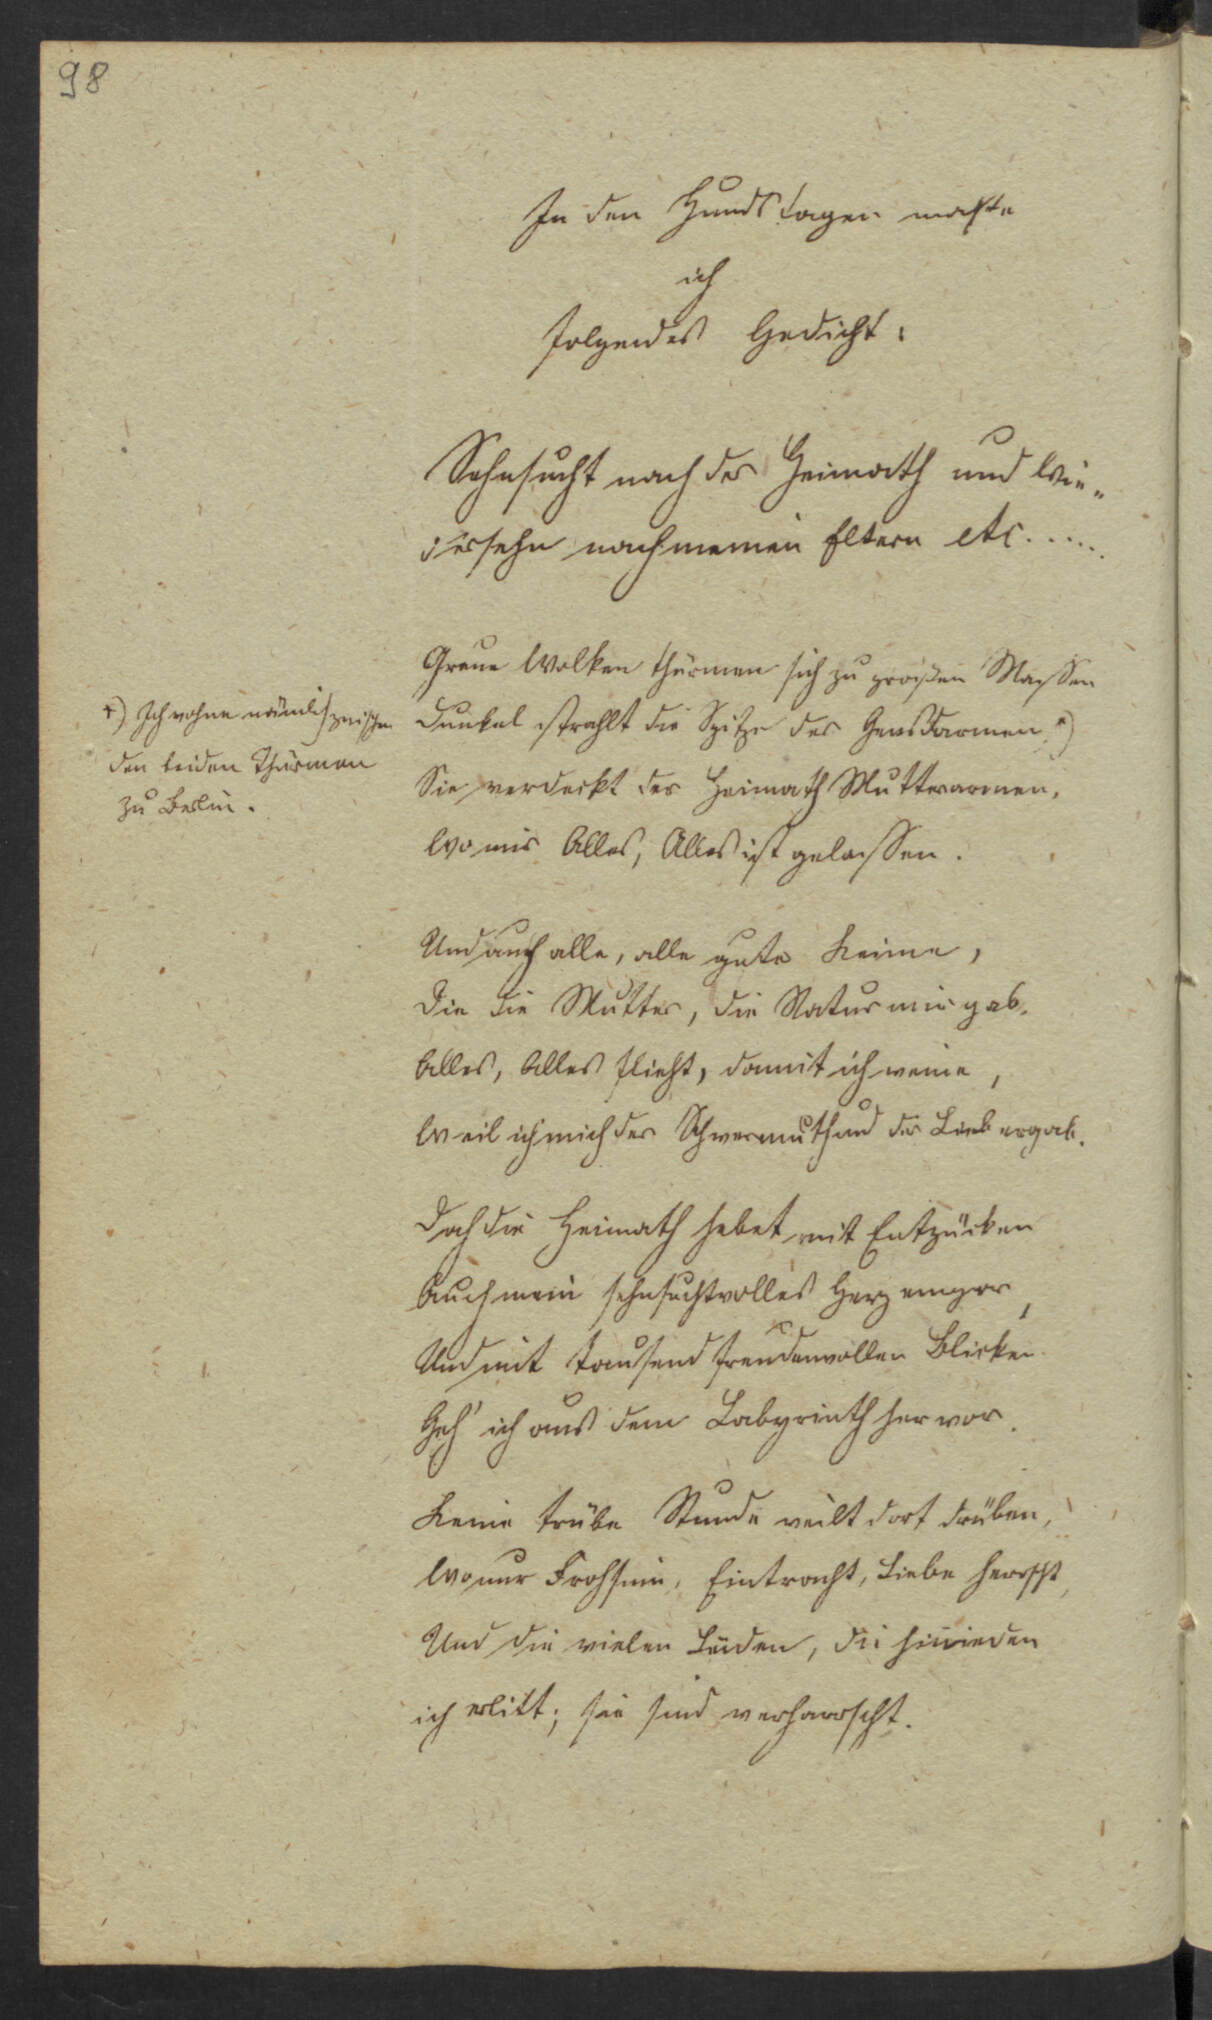 98
In den Hundstagen machte
ich
folgendes Gedicht:
Sehnsucht nach der Heimath und Wie-
dersehn nach meinen Eltern etc......
Graue Wolken thürmen sich zu großen Massen
Dunkel strahlt die Spitze des Gensdarmen *)
Sie verdeckt der Heimath Mutterarmen,
Wo mir Alles, Alles ist gelassen.
*) Ich wohne nämlich zwischen
den beiden Thürmen
zu Berlin.
Und auch alle, alle gute Keime,
Die die Mutter, die Natur mir gab.
Alles, Alles flieht, damit ich weine,
Weil ich mich der Schwermuth und der Lieb ergab.
Doch die Heimath hebet mit Entzücken
Auch mein sehnsuchtvolles Herz empor,
Und mit tausend freudenvollen Blicken
Geh' ich aus dem Labyrinth hervor.
Keine trübe Stunde weilt dort drüben,
Wo nur Frohsinn, Eintracht, Liebe herrscht,
Und die vielen Leiden, die hienieden
ich erlitt; sie sind verharrscht.